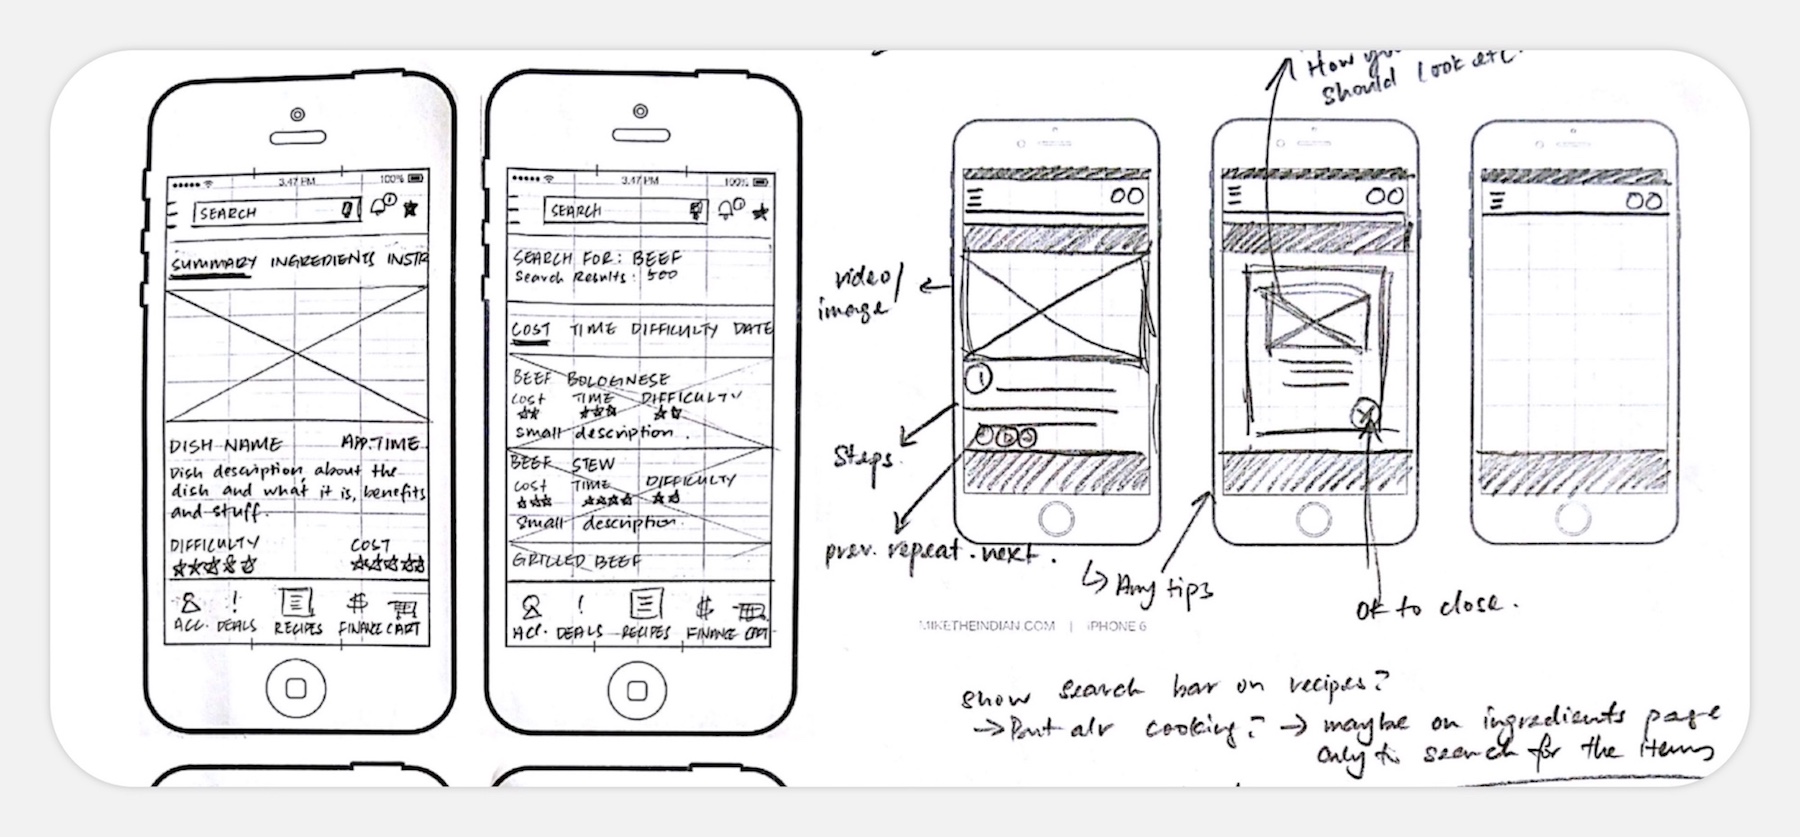 3.47 PM
100%
SEARCH
1
SUMMARY INGREDIENTS INSTR
DISH NAME APP.TIME
Dish description, about the
dish and what it is, benefits
and stuff.
DIFFICULTY COST
ACC. DEALS RECIPES FINANCE CART
3.47 PM
100%
SEARCH
SEARCH FOR: BEEF
Search Results: 500
COST TIME DIFFICULTY DATE
BEEF BOLOGINESE
COST TIME DIFFICULTY
Small description.
BEEF STEW
COST TIME DIFFICULTY
Small description.
GRILLED BEEF
ACC. DEALS RECIPES FINANCE CART
video/
image
Steps.
1
prev. repeat. next.
How
should look etc.
Any tips
OK to close.
MIKETHEINDIAN.COM | iPHONE 6
Show search bar on recipes?
→ But alr cooking? → maybe on ingredients page
only to search for the items